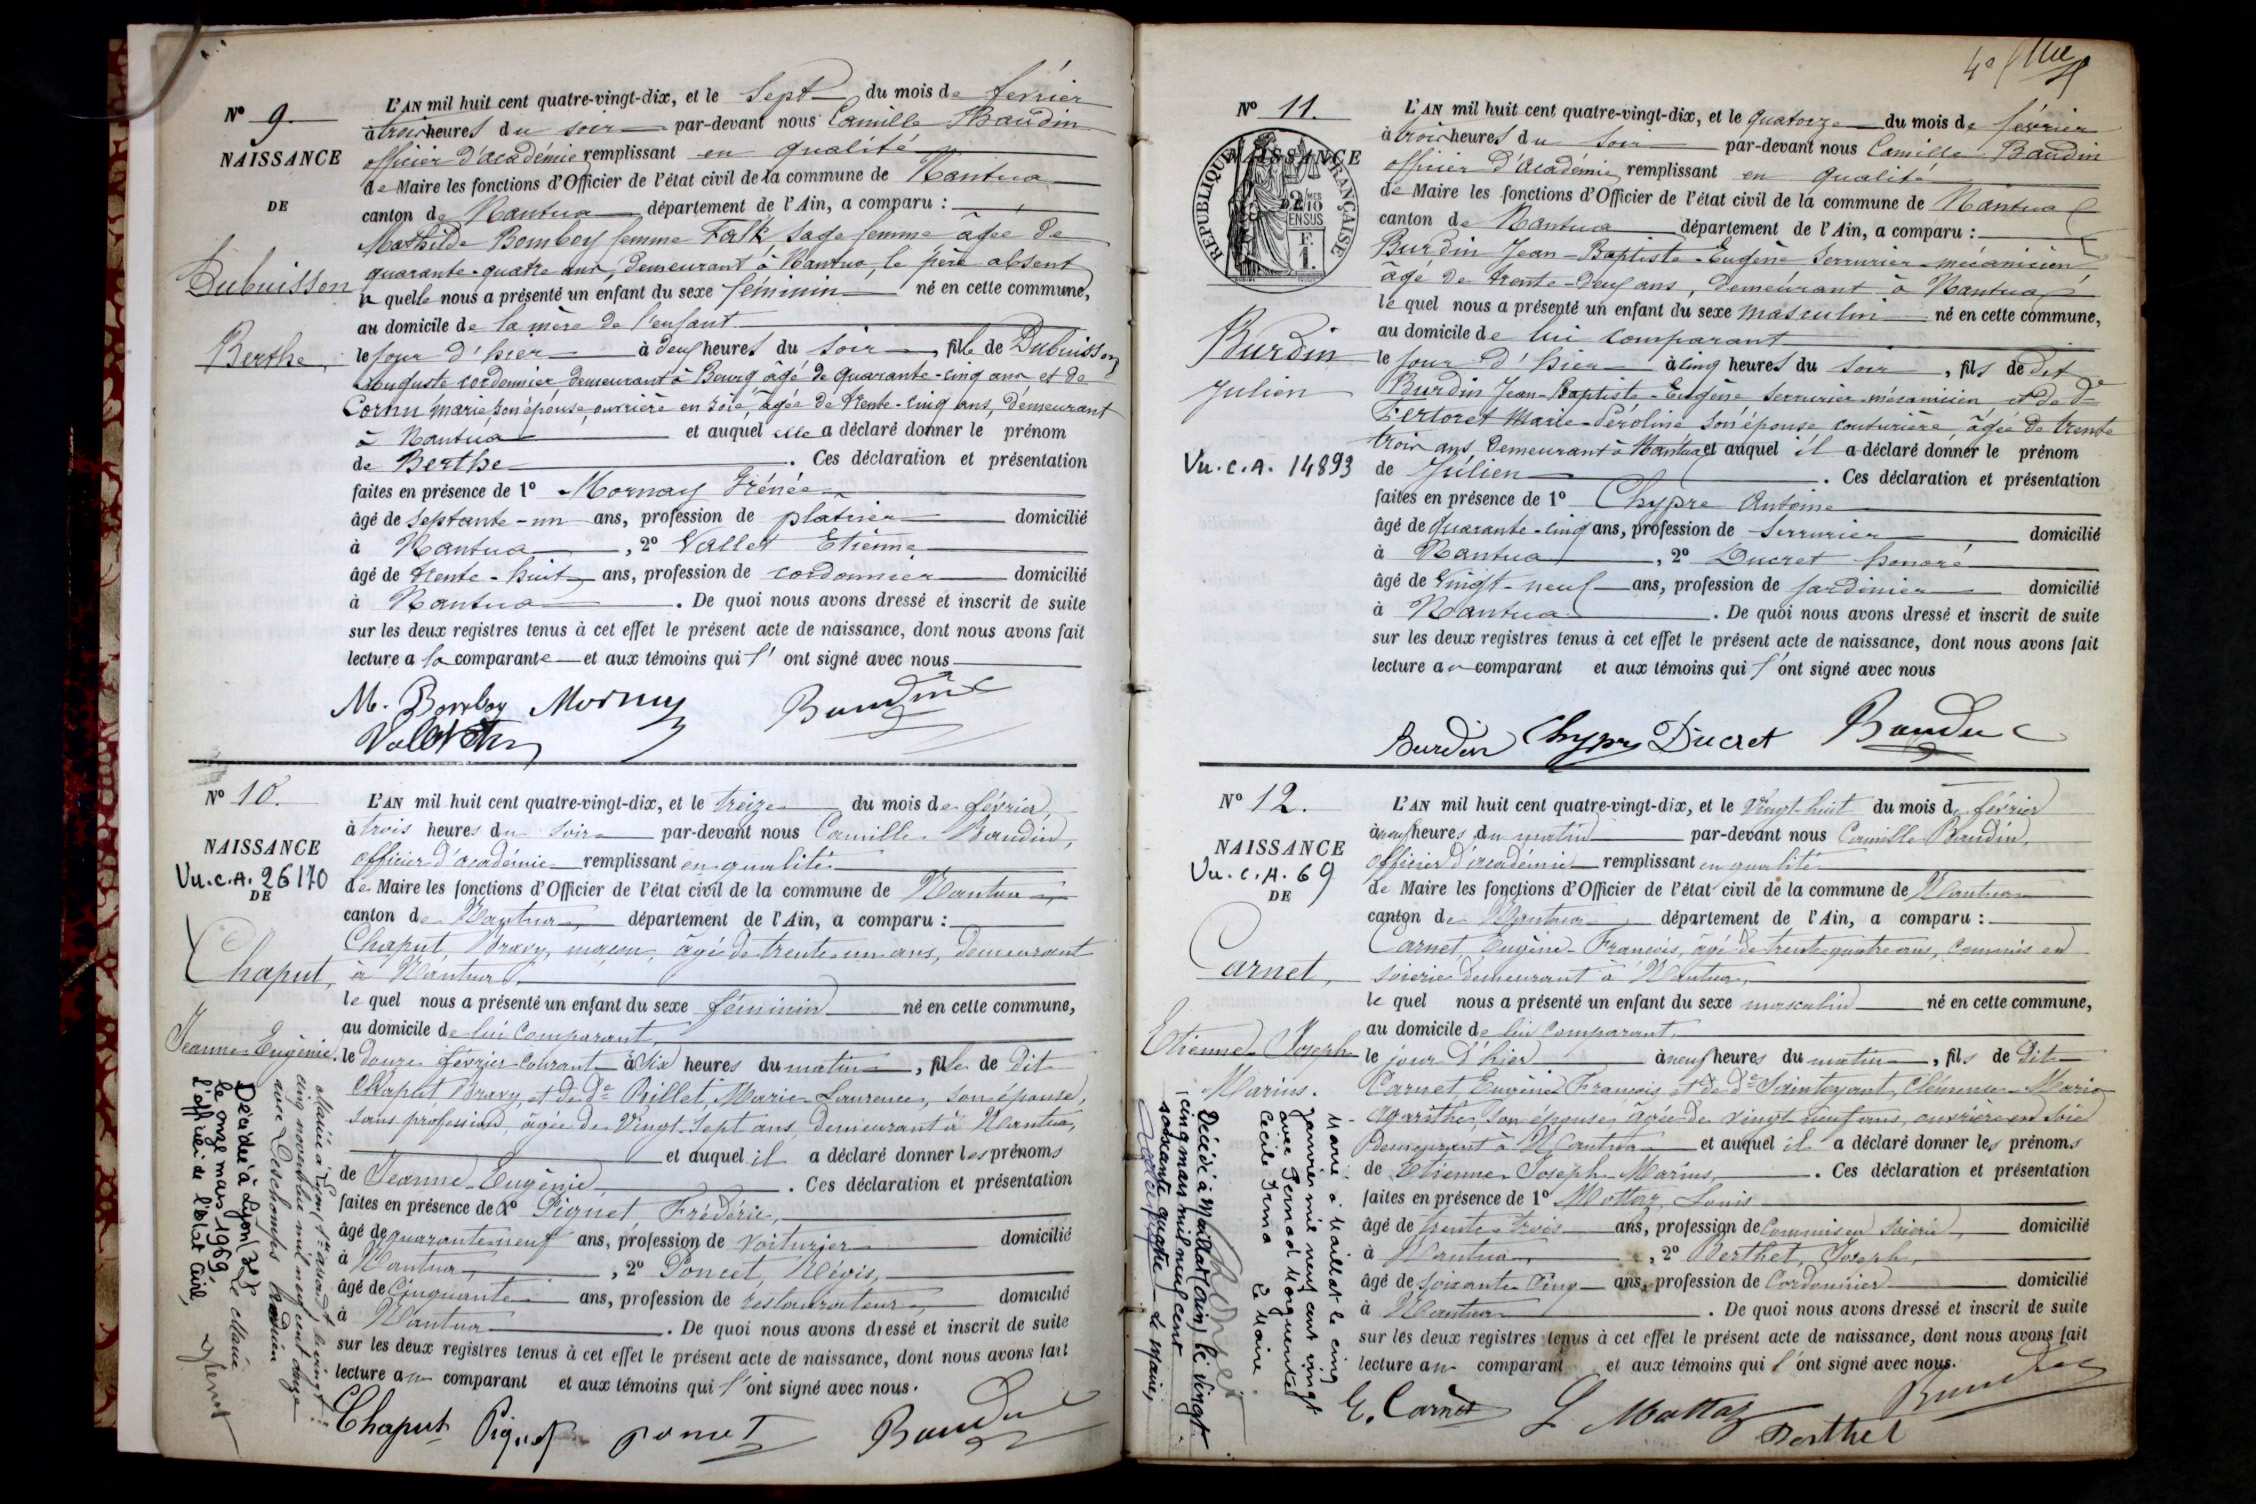 Nº 9.
NAISSANCE
DE
Dubuisson
Berthe
L'AN mil huit cent quatre-vingt-dix, et le Sept du mois de février
à trois heures du soir par-devant nous Camille Baudin
officier d'académie remplissant en qualité
de Maire les fonctions d'Officier de l'état civil de la commune de Nantua
canton de Nantua département de l'Ain, a comparu :
Mathilde Bomboy femme Falk sage femme âgée de
quarante-quatre ans, demeurant à Nantua, le père absent
la quelle nous a présenté un enfant du sexe féminin né en cette commune,
au domicile de la mère de l'enfant
le jour d'hier à deux heures du soir, fille de Dubuisson
Auguste cordonnier demeurant à Bourg âgé de quarante-cinq ans et de
Cornu Marie son épouse, ouvrière en soie, âgée de trente-cinq ans, demeurant
à Nantua et auquel elle a déclaré donner le prénom
de Berthe. Ces déclaration et présentation
faites en présence de 1º Mornay Irénée
âgé de septante-un ans, profession de platrier domicilié
à Nantua, 2º Vallet Etienne
âgé de trente-huit ans, profession de cordonnier domicilié
à Nantua. De quoi nous avons dressé et inscrit de suite
sur les deux registres tenus à cet effet le présent acte de naissance, dont nous avons fait
lecture a la comparante et aux témoins qui l'ont signé avec nous
M. Bomboy Mornay Baudin
Nº 10.
NAISSANCE
Vu.c.A. 26170
DE
Chaput,
Jeanne Eugénie.
L'AN mil huit cent quatre-vingt-dix, et le treize du mois de février,
à trois heures du soir par-devant nous Camille Baudin,
officier d'académie remplissant en qualité
de Maire les fonctions d'Officier de l'état civil de la commune de Nantua
canton de Nantua, département de l'Ain, a comparu :
Chaput, Bravy, maçon, âgé de trente-un ans, demeurant
à Nantua
le quel nous a présenté un enfant du sexe féminin né en cette commune,
au domicile de lui comparant,
le douze février courant à six heures du matin, fille de dit
Chaput Bravy, et de de Billet, Marie Laurence, son épouse,
sans profession, âgée de vingt-sept ans, demeurant à Nantua,
et auquel il a déclaré donner les prénoms
de Jeanne Eugénie. Ces déclaration et présentation
faites en présence de 1º Piquet Frédéric,
âgé de quarante-neuf ans, profession de voiturier domicilié
à Nantua, 2º Poncet, Régis,
âgé de Cinquante ans, profession de restaurateur, domicilié
à Nantua. De quoi nous avons dressé et inscrit de suite
sur les deux registres tenus à cet effet le présent acte de naissance, dont nous avons fait
lecture au comparant et aux témoins qui l'ont signé avec nous.
Chaput Piquet Poncet Baudin
Mariée à Lyon 1er arrondt le vingt
cinq novembre mil neuf cent douze
avec Deschamps
Le Maire
Décédée à Lyon (3e)
le onze mars 1969
l'officier de l'état civil,
4e
Nº 11.
NAISSANCE
RÉPUBLIQUE FRANÇAISE
2/10
EN SUS
F.
1.
Burdin
Julien
Vu.c.A. 14893
L'AN mil huit cent quatre-vingt-dix, et le quatorze du mois de février
à trois heures du soir par-devant nous Camille Baudin
officier d'académie, remplissant en qualité
de Maire les fonctions d'Officier de l'état civil de la commune de Nantua
canton de Nantua département de l'Ain, a comparu :
Burdin Jean-Baptiste-Eugène serrurier-mécanicien
âgé de trente-deux ans, demeurant à Nantua
le quel nous a présenté un enfant du sexe masculin né en cette commune,
au domicile de lui comparant
le jour d'hier à cinq heures du soir, fils de dit
Burdin Jean-Baptiste-Eugène serrurier-mécanicien et de de
Pertoret Marie-Péroline son épouse couturière âgée de trente
trois ans, demeurant à Nantua et auquel il a déclaré donner le prénom
de Julien. Ces déclaration et présentation
faites en présence de 1º Chypre Antoine
âgé de quarante-cinq ans, profession de serrurier domicilié
à Nantua, 2º Ducret honoré
âgé de vingt-neuf ans, profession de jardinier domicilié
à Nantua. De quoi nous avons dressé et inscrit de suite
sur les deux registres tenus à cet effet le présent acte de naissance, dont nous avons fait
lecture au comparant et aux témoins qui l'ont signé avec nous
Burdin Chypre Ducret Baudin
Nº 12.
NAISSANCE
Vu.c.A. 69
DE
Carnet,
Etienne Joseph
Marius.
L'AN mil huit cent quatre-vingt-dix, et le vingt-huit du mois de février
à neuf heures du matin par-devant nous Camille Baudin,
officier d'académie remplissant en qualité
de Maire les fonctions d'Officier de l'état civil de la commune de Nantua
canton de Nantua département de l'Ain, a comparu :
Carnet Eugène François, âgé de trente-quatre ans, commis en
soierie demeurant à Nantua,
le quel nous a présenté un enfant du sexe masculin né en cette commune,
au domicile de lui comparant,
le jour d'hier à neuf heures du matin, fils de dit
Carnet Eugène François, et de de Saintoyant, Clémence-Marie
Agarithe, son épouse, âgée de vingt-neuf ans, ouvrière en soie
demeurant à Nantua et auquel il a déclaré donner les prénoms
de Etienne Joseph Marius,. Ces déclaration et présentation
faites en présence de 1º Mottaz, Louis
âgé de trente-trois ans, profession de Commis en soierie, domicilié
à Nantua, 2º Berthet, Joseph,
âgé de soixante cinq ans, profession de Cordonnier domicilié
à Nantua. De quoi nous avons dressé et inscrit de suite
sur les deux registres tenus à cet effet le présent acte de naissance, dont nous avons fait
lecture au comparant et aux témoins qui l'ont signé avec nous.
E. Carnet L. Mottaz Berthet Baudin
Marié à Maillat le cinq
janvier mil neuf cent vingt
avec Pernod Marguerite
Cécile Irma Le Maire
Décédé à Maillat (Ain) le vingt
cinq mars mil neuf cent
soixante quatre - Le Maire,